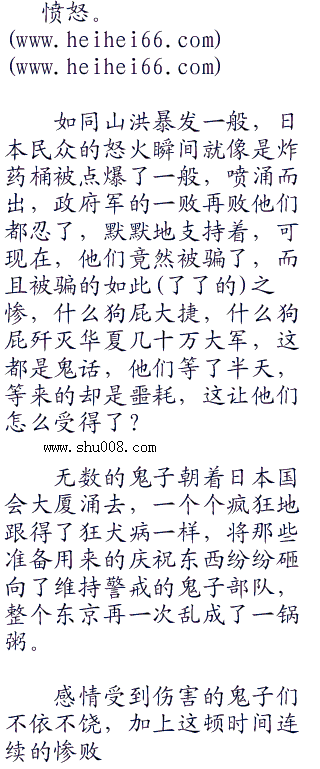 愤怒。
(www.heihei66.com)
(www.heihei66.com)
如同山洪暴发一般，日
本民众的怒火瞬间就像是炸
药桶被点爆了一般，喷涌而
出，政府军的一败再败他们
都忍了，默默地支持着，可
现在，他们竟然被骗了，而
且被骗的如此(了了的)之
惨，什么狗屁大捷，什么狗
屁歼灭华夏几十万大军，这
都是鬼话，他们等了半天，
等来的却是噩耗，这让他们
怎么受得了？
www.shu008.com
无数的鬼子朝着日本国
会大厦涌去，一个个疯狂地
跟得了狂犬病一样，将那些
准备用来的庆祝东西纷纷砸
向了维持警戒的鬼子部队，
整个东京再一次乱成了一锅
粥。
感情受到伤害的鬼子们
不依不饶，加上这顿时间连
续的惨败